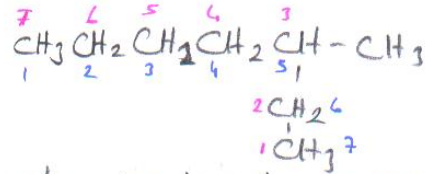 7 6 5 4 3
CH3 CH2 CH2 CH2 CH - CH3
1 2 3 4 5
2 CH2 6
1 CH3 7